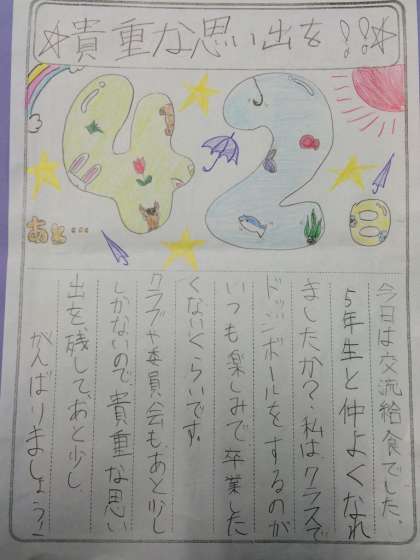 ☆貴重な思い出を!!☆
42
あと…
日
今日は交流給食でした。
5年生と仲よくなれ
ましたか?私はクラスで
ドッジボールをするのが
いつも楽しみで卒業した
くないくらいです。
クラブや委員会もあと少し
しかないので、貴重な思い
出を残して、あと少し
がんばりましょう!